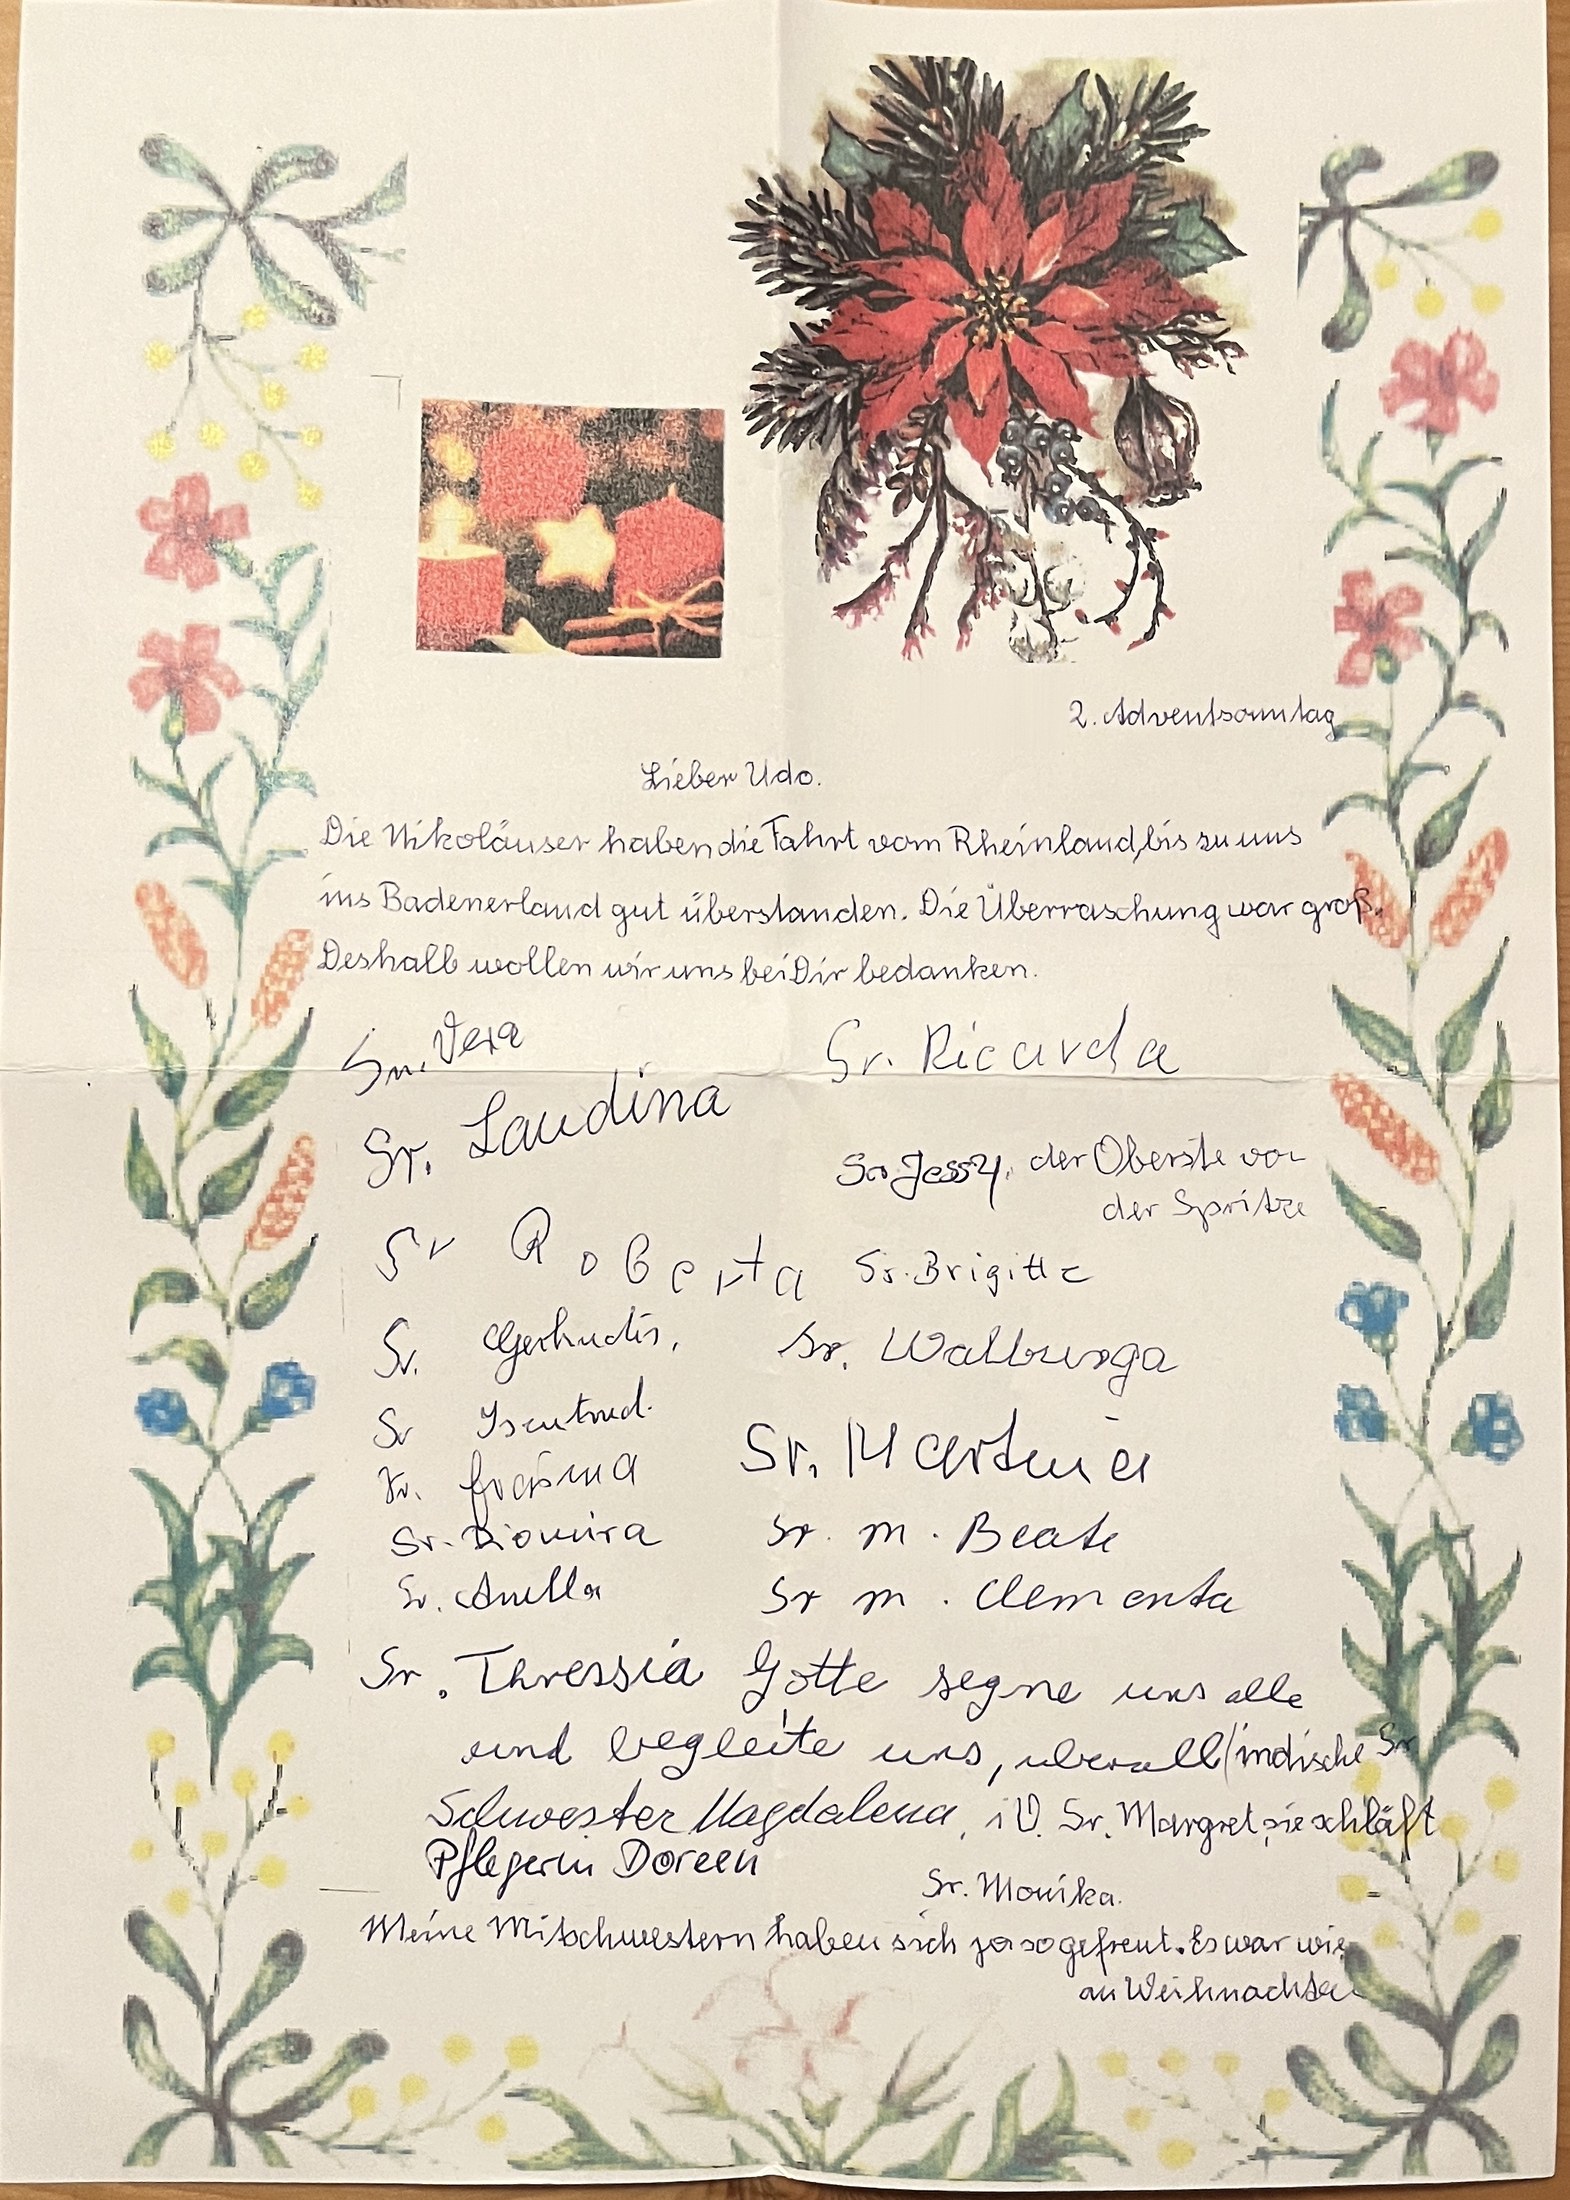 2. Adventsonntag
Lieber Udo.
Die Nikoläuser haben die Fahrt vom Rheinland, bis zu uns
ins Badenerland gut überstanden. Die Überraschung war groß.
Deshalb wollen wir uns bei Dir bedanken.
Sr. Vera
Sr. Ricarda
Sr. Laudina
Sr. Jessy, der Oberste von
der Spritze
Sr Roberta
Sr. Brigitte
Sr. Gertrudis,
Sr. Walburga
Sr Isentrud.
Sr. Martina
Sr.
Sr. Diomira
Sr. M. Beate
Sr.
Sr M. Clementa
Sr. Thressia Gotte segne uns alle
und begleite uns, uberall (indische Sr
Schwester Magdalena, i V. Sr. Margret, sie schläft
Pflegerin Doreen
Sr. Monika.
Meine Mitschwestern haben sich ja so gefreut. Es war wie
an Weihnachten